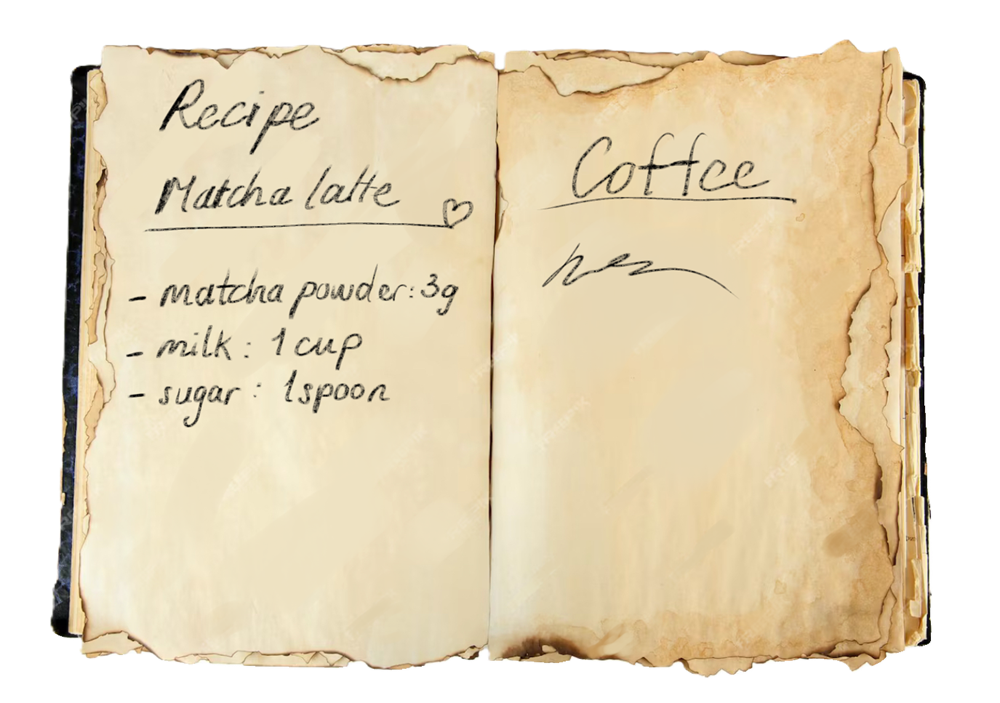 Recipe
Matcha latte
- matcha powder: 3g
- milk: 1 cup
- sugar: 1 spoon
Coffee